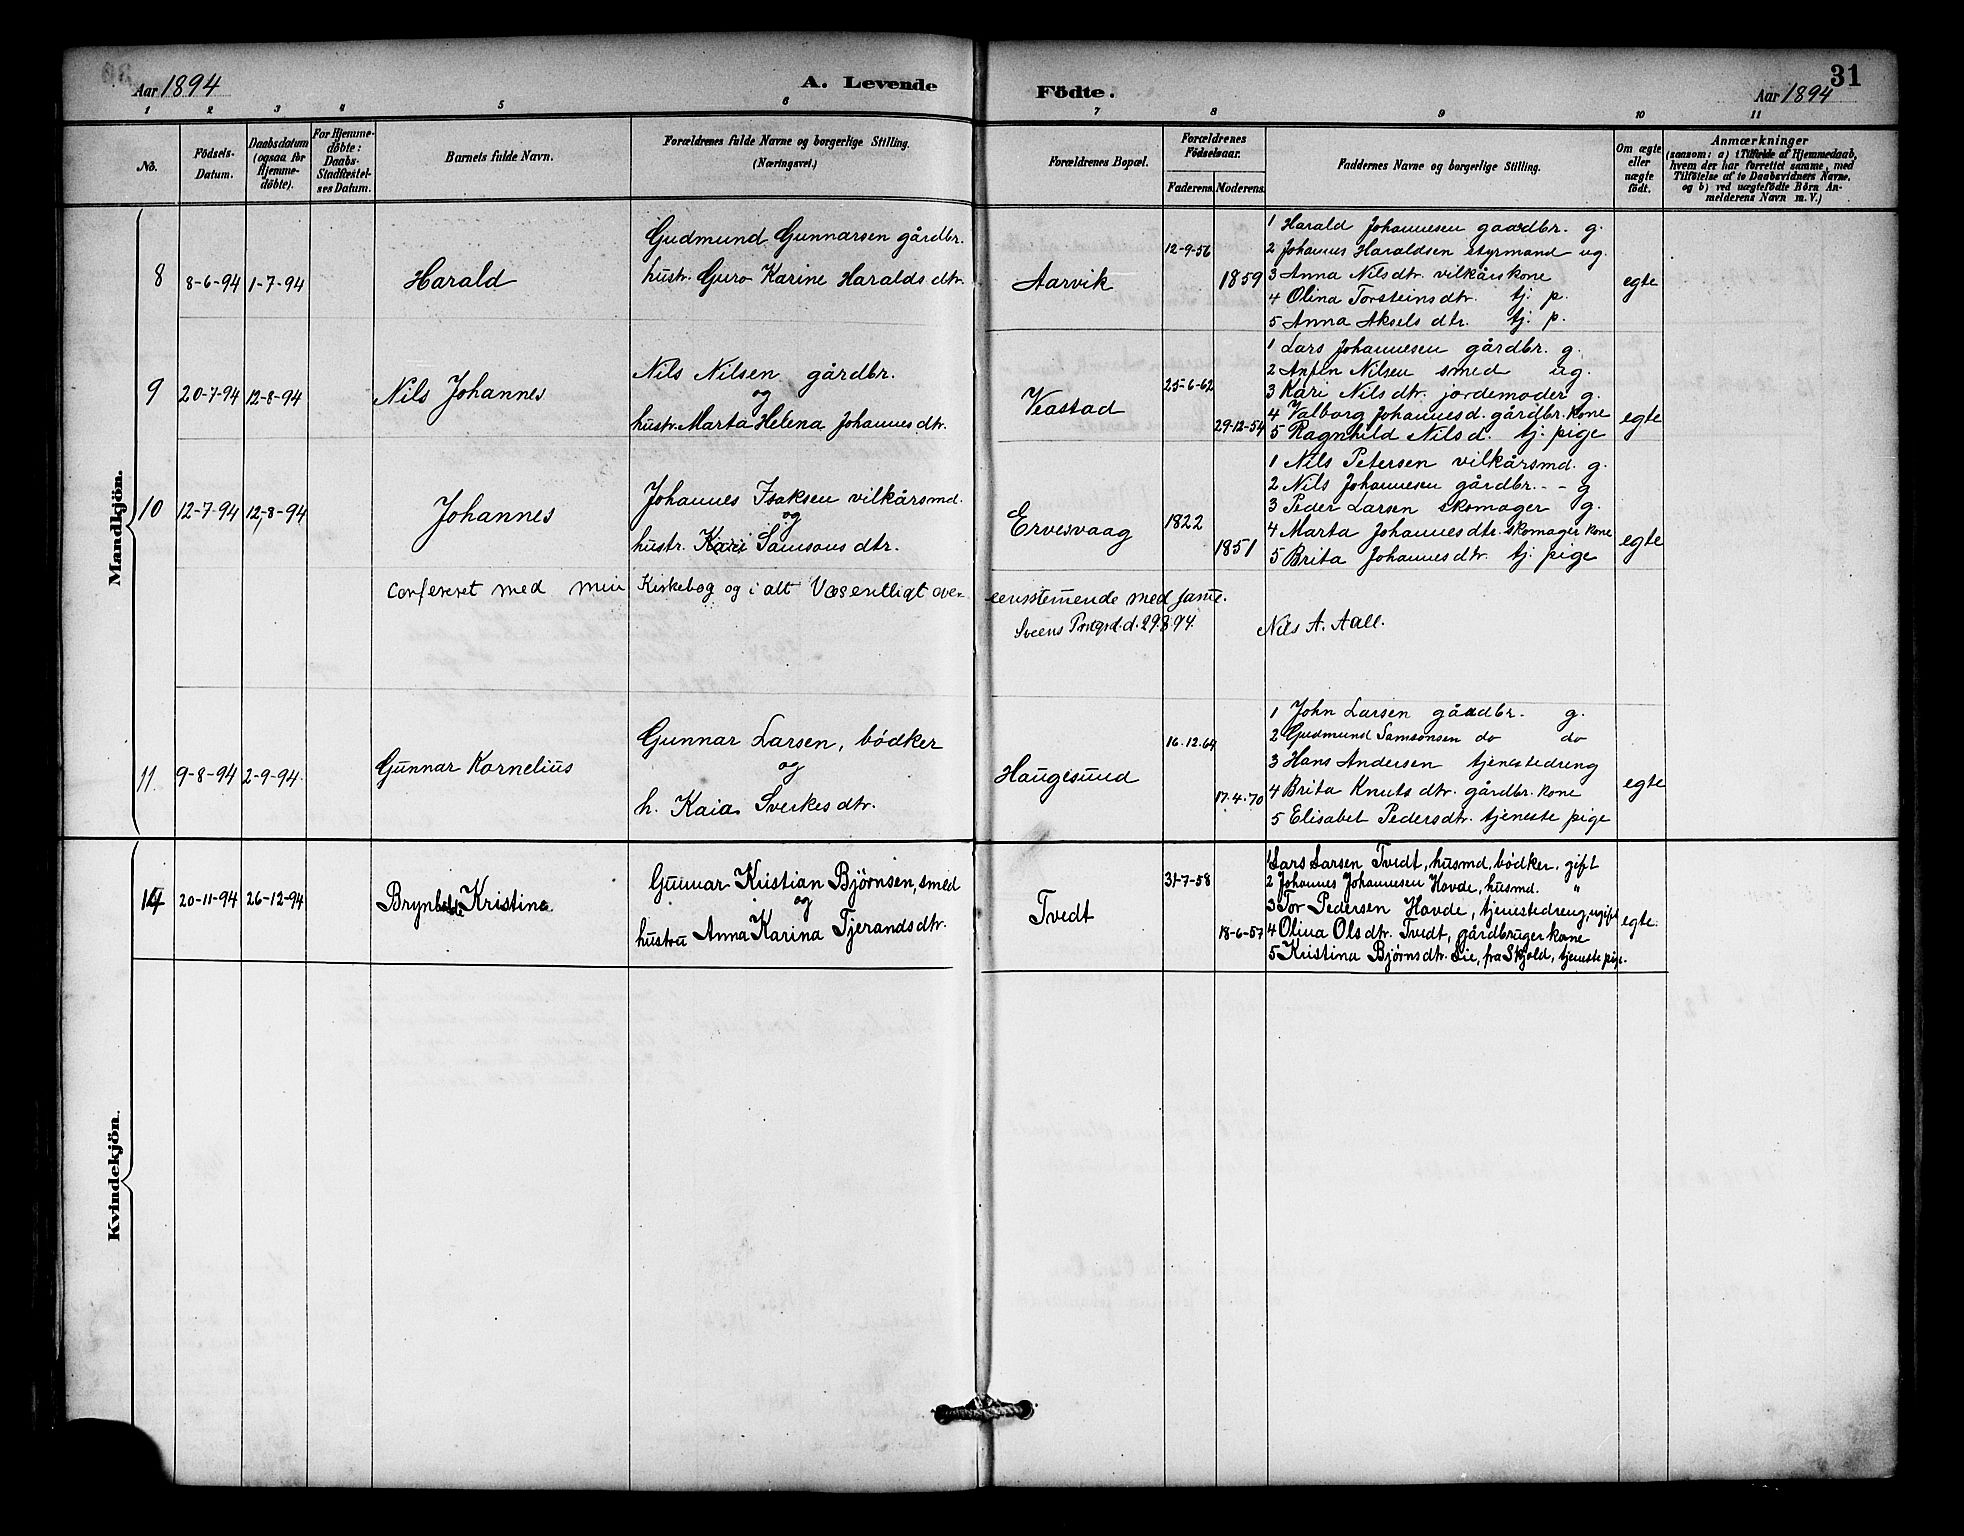 Aar 1894
A. Levende Födte.
31
Aar 1894
1 2 3 4 5 6 7 8 9 10 11
No.
Födsels-Datum.
Daabsdatum (ogsaa for Hjemme-döbte).
For Hjemme-döbte: Daabs-Stadfæstel-ses Datum.
Barnets fulde Navn.
Forældrenes fulde Navne og borgerlige Stilling. (Næringsvei.)
Forældrenes Bopæl.
Forældrenes Födselsaar.
Faderens. Moderens.
Faddernes Navne og borgerlige Stilling.
Om ægte eller uægte födt.
Anmærkninger
(saasom: a) i Tilfælde af Hjemmedaab,
hvem der har forrettet samme, med
Tilföielse af to Daabsvidners Navne,
og b) ved uægtefödte Börn An-
melderens Navn m. V.)
Mandkjön.
8 8-6-94 1-7-94 Harald
Gudmund Gunnarsen gårdbr.
hustr. Guro Karine Haralds dtr.
Aarvik
12-9-56
1859
1 Harald Johannesen gaardbr. g.
2 Johannes Haraldsen styrmand ug.
3 Anna Nilsdtr. vilkårskone
4 Olina Torsteinsdtr. tj. p.
5 Anna Aksels dtr. tj. p.
egte
9 20-7-94 12-8-94 Nils Johannes
Nils Nilsen gårdbr.
og
hustr. Marta Helena Johannesdtr.
Veastad
25-6-62
29-12-54
1 Lars Johannesen gårdbr. g.
2 Anfin Nilsen smed ug.
3 Kari Nilsdtr. jordemoder g.
4 Valborg Johannesd. gårdbr. kone
5 Ragnhild Nilsd. tj. pige
egte
10 12-7-94 12-8-94 Johannes
Johannes Isaksen vilkårsmd.
og
hustr. Kari Samsons dtr.
Ervesvaag
1822
1851
1 Nils Petersen vilkårsmd. g.
2 Nils Johannesen gårdbr. - - g
3 Peder Larsen skomager g.
4 Marta Johannesdtr. skomager kone
5 Brita Johannesdtr. tj. pige
egte
Confereret med min Kirkebog og i alt Væsentligt over-
eensstemende med same.
Sveens Prstgrd. d. 29.8.94. Nils A. Aall.
11. 9-8-94 2-9-94. Gunnar Kornelius
Gunnar Larsen, bödker
og
h. Kaia Sverkesdtr.
Haugesund
16.12.64
17.4.70
1 John Larsen gårdbr. g.
2 Gudmund Samsonsen do do
3 Hans Andersen tjenestedreng
4 Brita Knuts dtr. gårdbr. kone
5 Elisabet Pedersdtr. tjeneste pige
egte
Kvindekjön.
14 20-11-94 26-12-94 Brynhilde Kristine
Gunnar Kristian Björnsen, smed
og
hustru Anna Karina Tjerandsdtr.
Tvedt
31-7-58
18-6-57
1 Lars Larsen Tvedt, husmd, bödker, gift
2 Johannes Johannesen Hovde, husmd. "
3 Tor Pedersen Hovde, tjenestedreng, ugift
4 Olina Olsdtr. Tvedt, gårdbruger kone
5 Kristina Björnsdtr. Lie, fra Skjold, tjeneste pige.
egte.